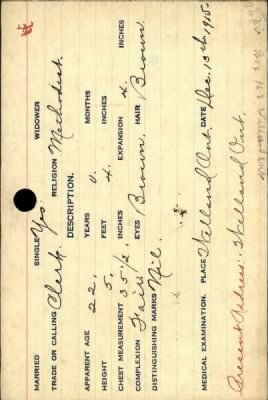 MARRIED SINGLE Yes WIDOWER
TRADE OR CALLING Clerk. RELIGION Methodist
DESCRIPTION.
APPARENT AGE 22, YEARS 0. MONTHS
HEIGHT 5, FEET 4. INCHES
CHEST MEASUREMENT 35½ INCHES EXPANSION 4. INCHES
COMPLEXION Fair. EYES Brown. HAIR Brown.
DISTINGUISHING MARKS Nil.
MEDICAL EXAMINATION. PLACE Welland Ont. DATE Dec. 13th. 1915.
Present Address:- Welland Ont.